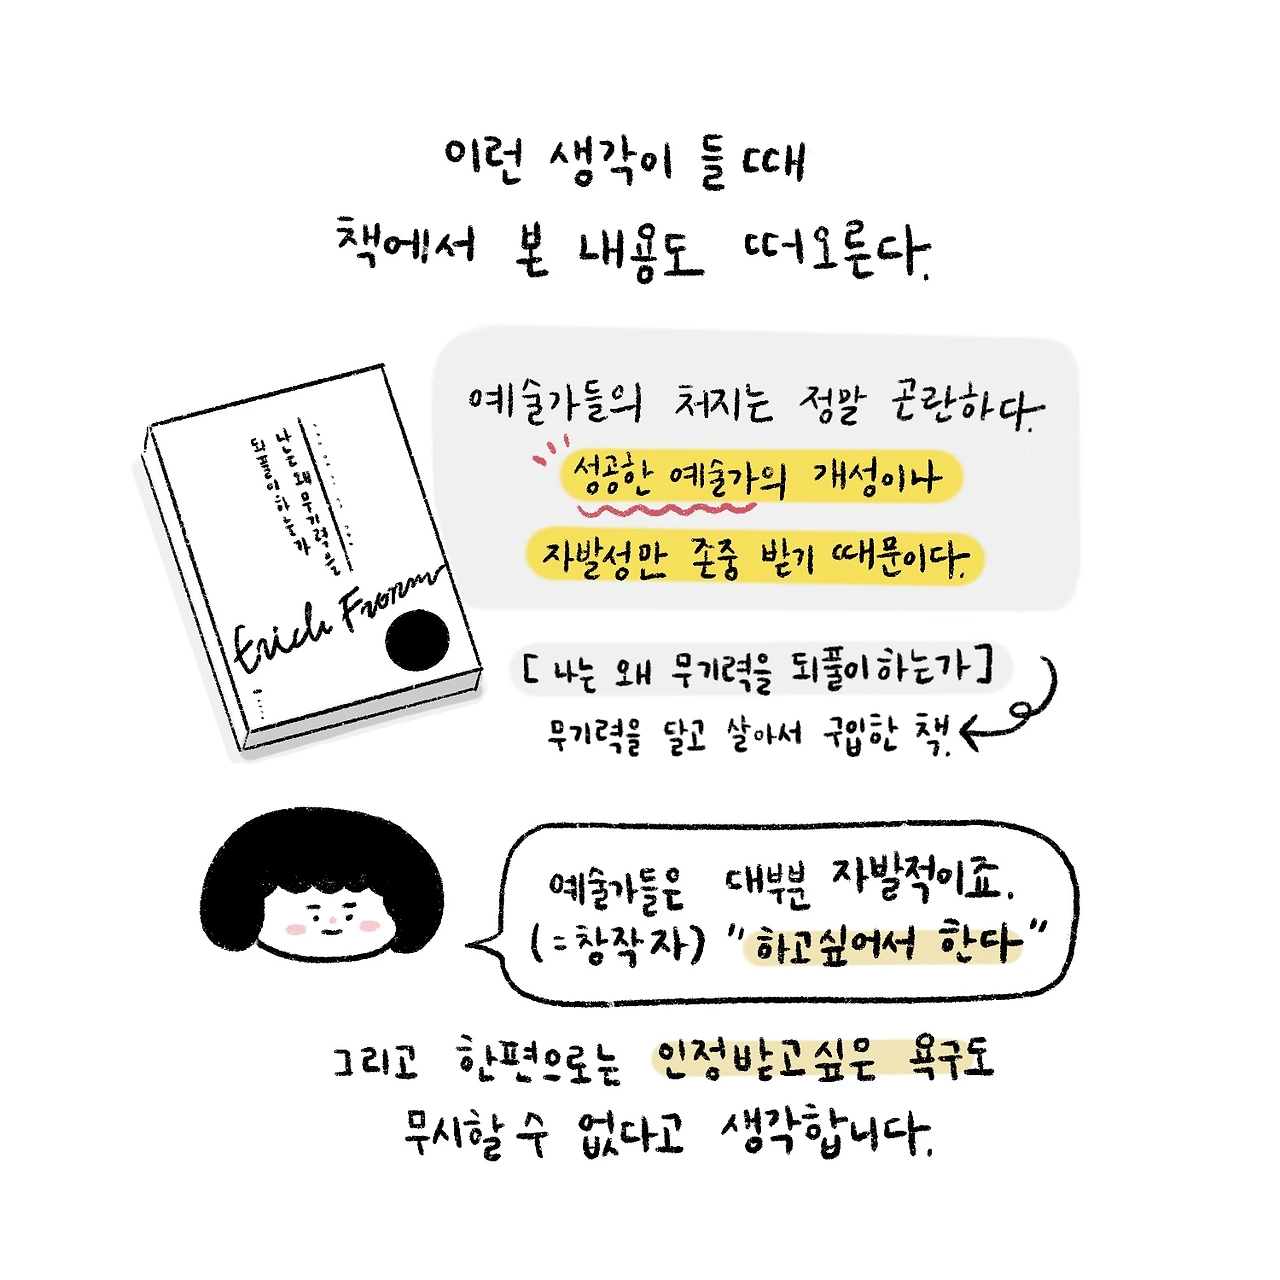 이런 생각이 들 때
책에서 본 내용도 떠오른다.
예술가들의 처지는 정말 곤란하다.
성공한 예술가의 개성이나
자발성만 존중 받기 때문이다.
나는 왜 무기력을
되풀이하는가
Erich Fromm
[나는 왜 무기력을 되풀이하는가]
무기력을 달고 살아서 구입한 책.
예술가들은 대부분 자발적이죠.
(=창작자) "하고싶어서 한다"
그리고 한편으로는 인정받고싶은 욕구도
무시할 수 없다고 생각합니다.